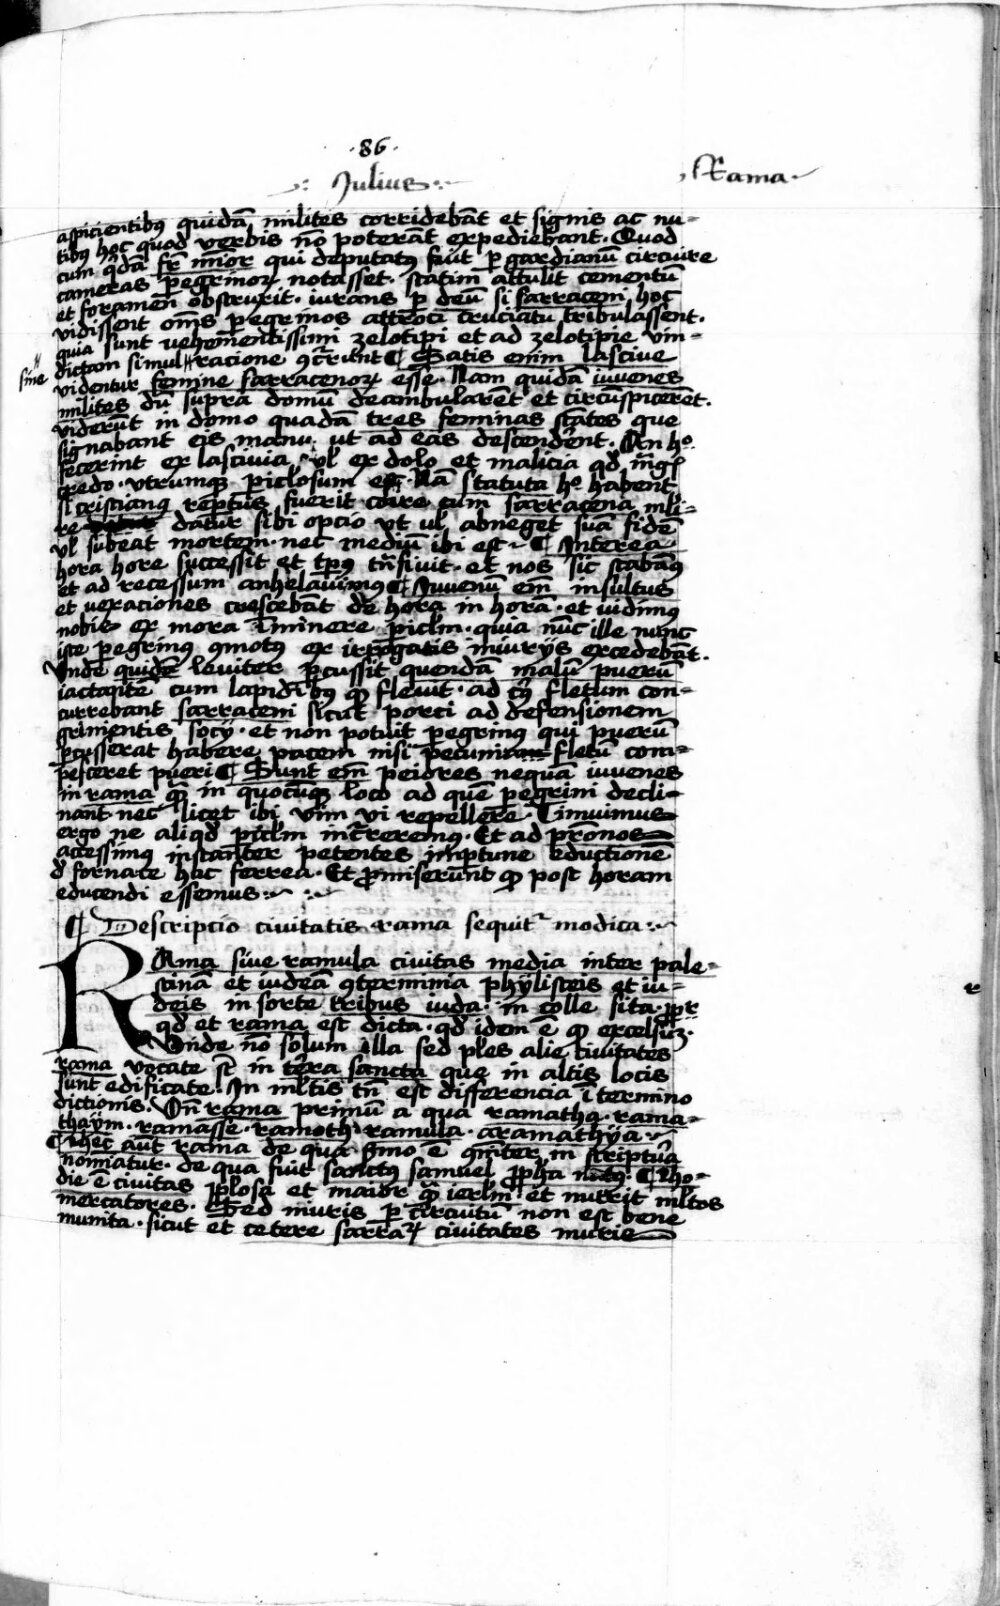 .86.
Julius
Rama
aspicientibꝯ quidā milites corridebāt et signis ac nu=
tibꝯ hoc quod verbis nō poterāt expediebant. Quod
cum qͥdā fr̄ mīor qui deputatꝯ fuit ꝑ gardianū circuire
cameras peregrinoꝝ notasset. statim attulit cementū
et foramen obstruxit. iurans ꝑ deū si sarraceni hoc
vidissent om̄s peregrinos attroci cruciatu tribulassent.
quia sunt vehementissimi zelotipi et ad zelotipie vin=
dictam simul racione ꝯcurrūt ¶ Satis enim lascive
sine
videntur femine sarracenoꝝ esse. Nam quidā iuvenes
milites dū supra domū deambularēt et circūspicerēt.
viderūt in domo quadā tres feminas stātes que
signabant eis manu. ut ad eas descenderēt. An hͦ
fecerint ex lascivia. vl̄ ex dolo et malicia
credo. utrumqꝫ piclosum est. Nā statuta hͦ habent
si cristianꝯ reptus fuerit coire cum sarracena mli=
re datur sibi opcio ut vl̄ abneget suā fidē
vl̄ subeat mortem. nec mediū ibi est ¶ Interea
hora hore successit et tp̄ꝯ trn̄sivit. et nos sic stabamꝯ
et ad recessum anhelavimꝯ ¶ Iuvenū em̄ insultus
et vexaciones crescebāt de hora in horā. et vidimꝯ
nobis ex mora īminere piclm̄. quia nūc ille nunc
iste peregrinꝯ ꝯmotꝯ ex irrogatis iniuriis excedebāt.
Unde quidē leviter ꝑcussit quendā malū puerū
iactantē cum lapidibꝯ qͥ flevit. ad cꝯ fletum con=
currebant sarraceni sicut porci ad defensionem
grinientis socij. et non potuit peregrinꝯ qui puerū
ꝑcusserat habere pacem nisi pecunia fletū com=
pesceret pueri ¶ Sunt em̄ peiores nequā iuvenes
in rama qͣ in quocūqꝫ loco ad quē peregrini decli=
nant. nec licet ibi vim vi repellere. Timuimus
ergo ne aliqd̄ piclm̄ incurreremꝯ. Et ad pr̄onos
accessimꝯ instanter petentes imptune eductionē
d̄ fornace hac ferrea. Et ꝓmiserunt qͥ post horam
educendi essemus
¶ Descripcio civitatis rama sequitʳ modica
RAma sive ramula civitas media inter pale=
stinā et iudeā ꝯterminia phylisteis et iu=
deis in sorte tribus iuda. in colle sita. ꝓpt
qd̄ et rama est dicta. qd̄ idem ē qͥ excelsū.
Unde nō solum illa sed pl̄es alie civitates
rama vocate st̄ in terra sancta que in altis locis
sunt edificate. In ml̄tis tn̄ est differencia ī termino
dictionis. Un̄ rama primū a qua ramatha. rama=
thaym. ramasse. ramoth ramula. aramathya
¶ Hec aūt rama de qua sermo ē qn̄iter in scriptura
nominatur. de qua fuit sanctꝯ samuel ꝓpha natꝯ. ¶ Ho=
die ē civitas pplosa et maior qͣ ierlm̄. et nutrit ml̄tos
mercatores. Sed muris ꝑ circuitū non est bene
munita. sicut et cetere sarraꝝ civitates muris